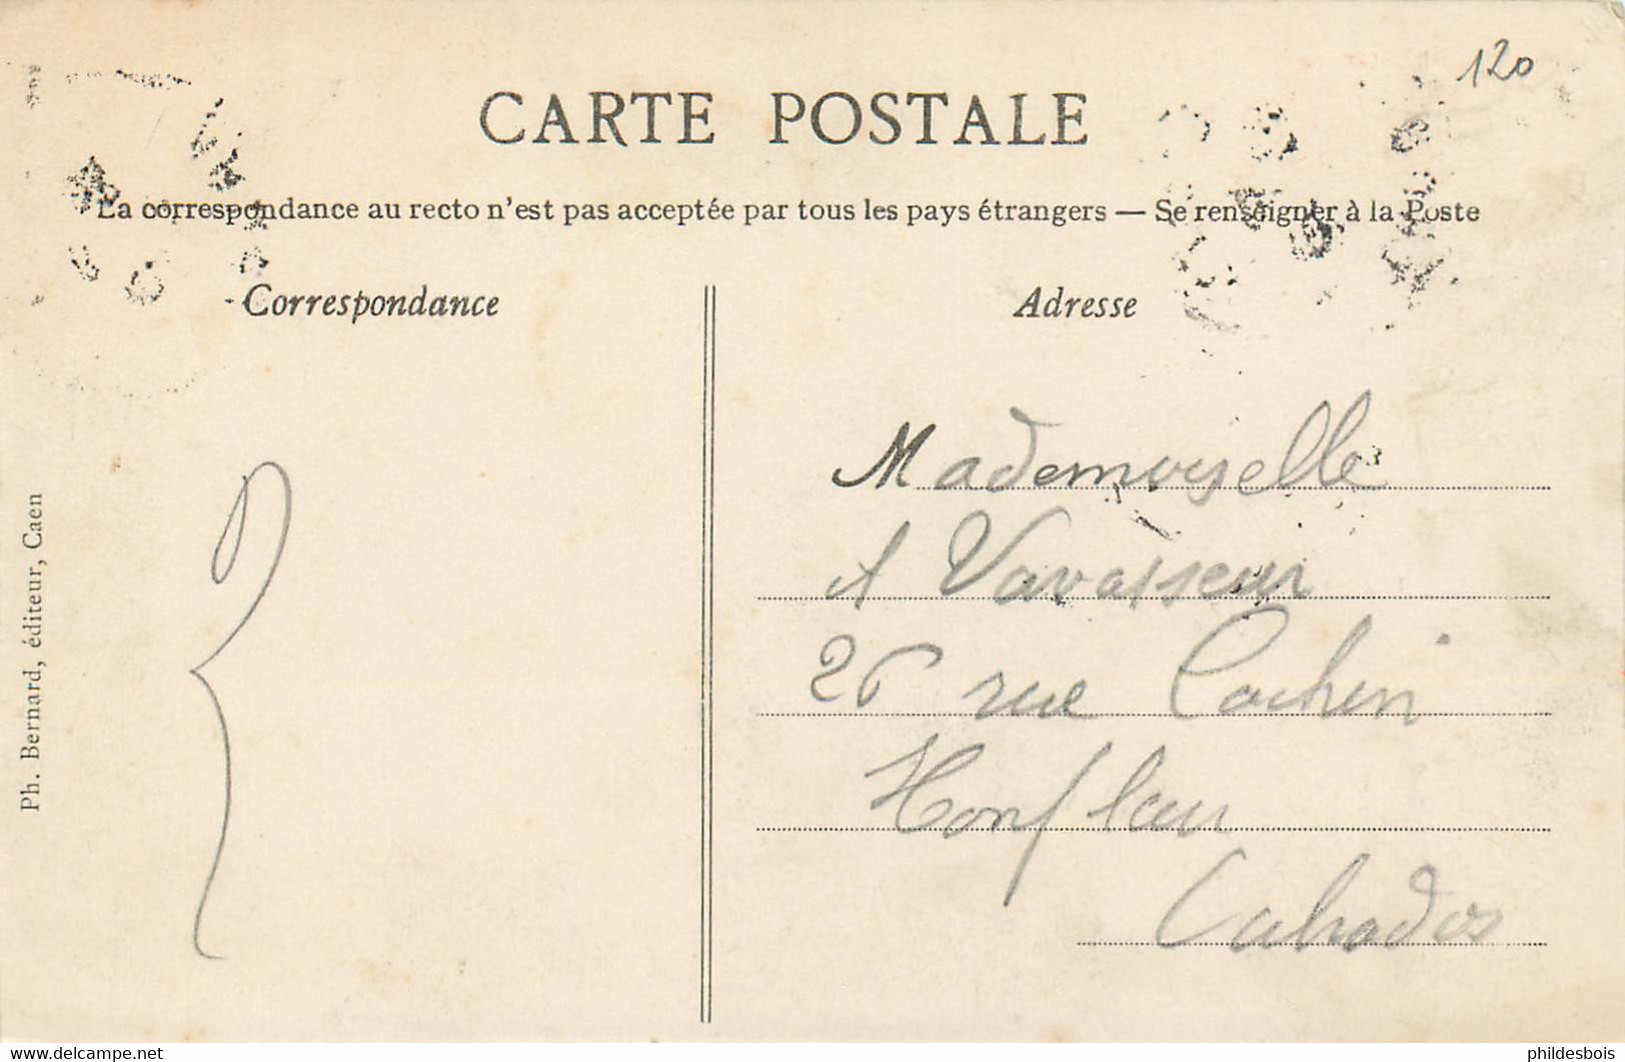 120
CARTE POSTALE
La correspondance au recto n'est pas acceptée par tous les pays étrangers — Se renseigner à la Poste
Correspondance
Adresse
Mademoiselle
A Vavasseur
26 rue Cachin
Honfleur
Calvados
Ph. Bernard, éditeur, Caen
www.delcampe.net
phildesbois